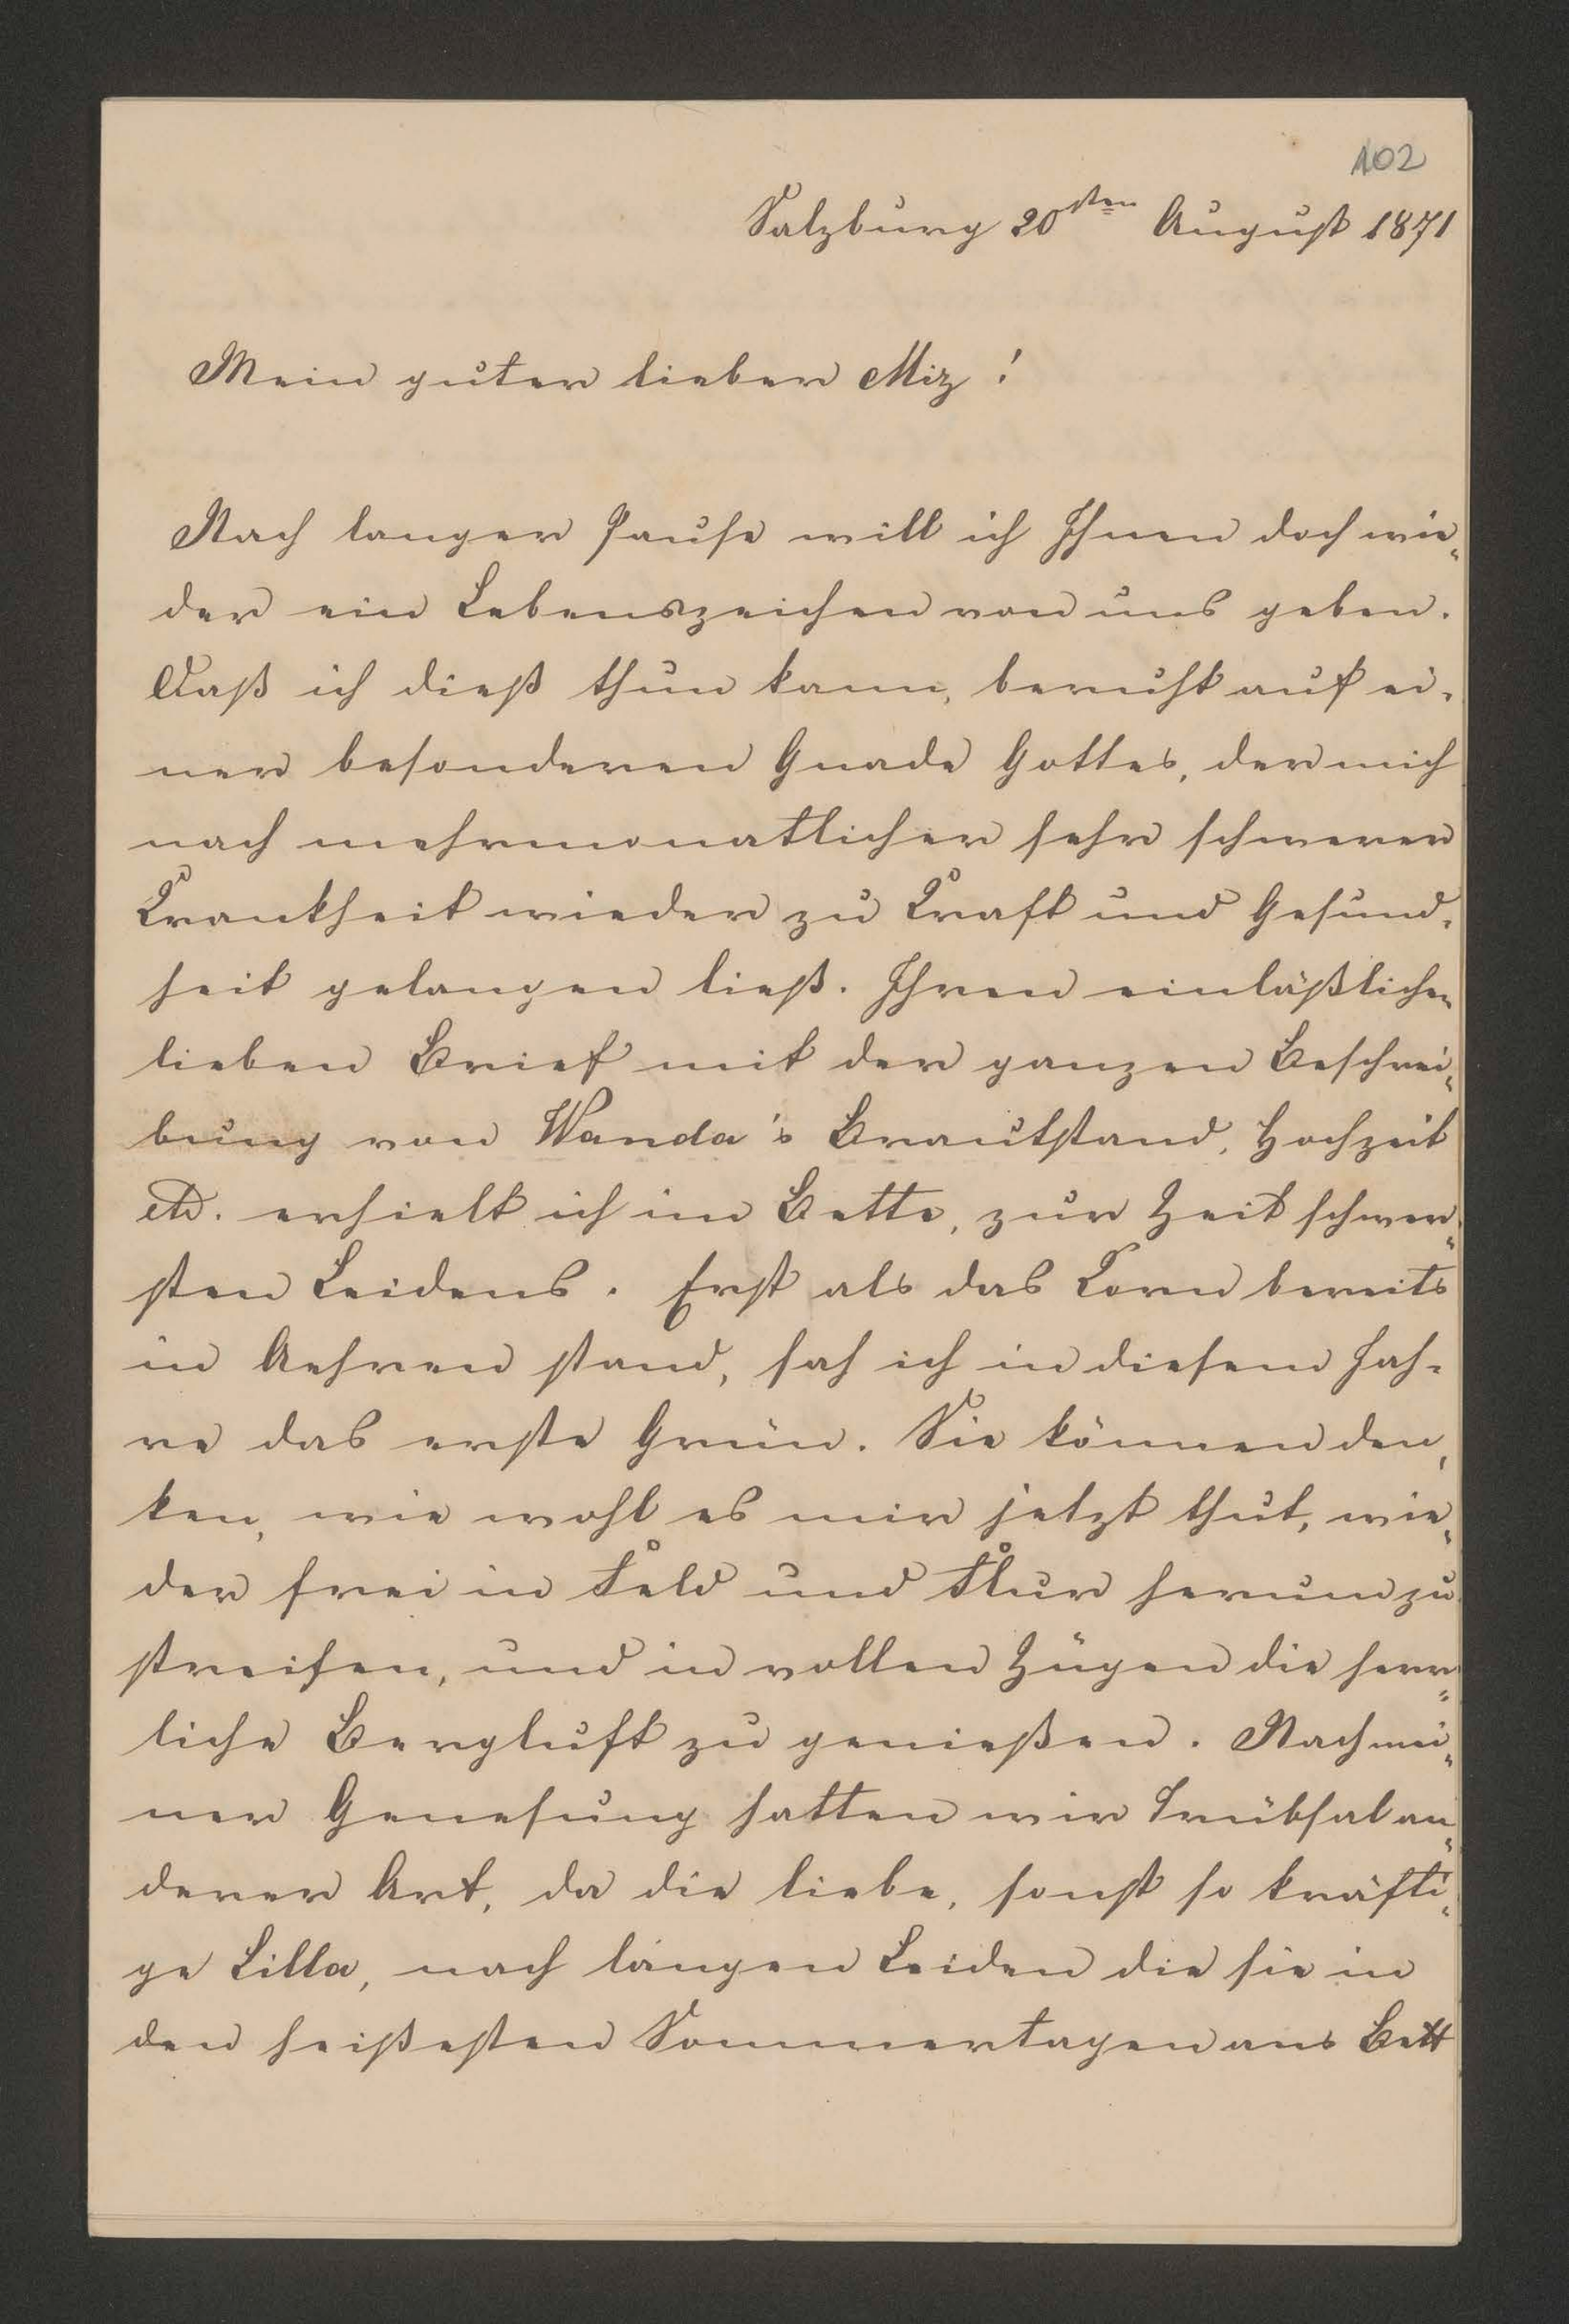 102
Salzburg 20sten August 1871
Mein guter lieber Miz!
Nach langer Pause will ich Ihnen doch wie-
der ein Lebenszeichen von uns geben.
Daß ich dieß thun kann, beruht auf ei-
ner besonderen Gnade Gottes, der mich
nach mehrmonatlicher sehr schwerer
Krankheit wieder zu Kraft und Gesund-
heit gelangen ließ. Ihren einläßlichen
lieben Brief mit der ganzen Beschrei-
bung von Wanda's Brautstand, Hochzeit
etc. erhielt ich im Bette, zur Zeit schwer-
sten Leidens. Erst als das Korn bereits
in Aehren stand, sah ich in diesem Jah-
re das erste Grün. Sie können den-
ken, wie wohl es mir jetzt thut, wie-
der frei in Feld und Flur herumzu
streifen, und in vollen Zügen die herr-
liche Bergluft zu genießen. Nach mei-
ner Genesung hatten wir Trübsal an-
derer Art, da die liebe, sonst so kräfti-
ge Lilla, nach langen Leiden die sie in
den heißesten Sommertagen ans Bett